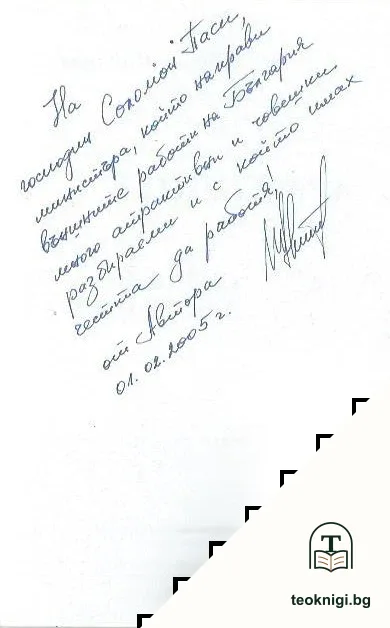 На
господин Соломон Паси,
министъра, който направи
външните работи на България
много атрактивни и човешки
разбираеми и с който имах
честта да работя!
от Автора
01.02.2005 г.
T
teoknigi.bg